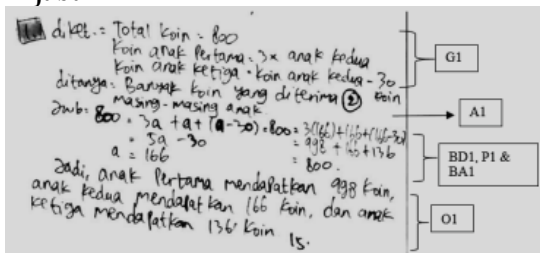 diket.= Total koin = 800
koin anak Pertama = 3x anak kedua
koin anak ketiga = koin anak kedua - 30
ditanya: Banyak koin yang diterima 2 koin
masing-masing anak
Jwb: 800 = 3a + a + (a-30) = 800 = 3(166)+166+(166-30)
= 5a - 30 = 998 + 166 + 136
a = 166 = 800.
Jadi, anak Pertama mendapatkan 998 koin,
anak kedua mendapatkan 166 koin, dan anak
ketiga mendapatkan 136 koin
15.
G1
A1
BD1, P1 &
BA1
O1